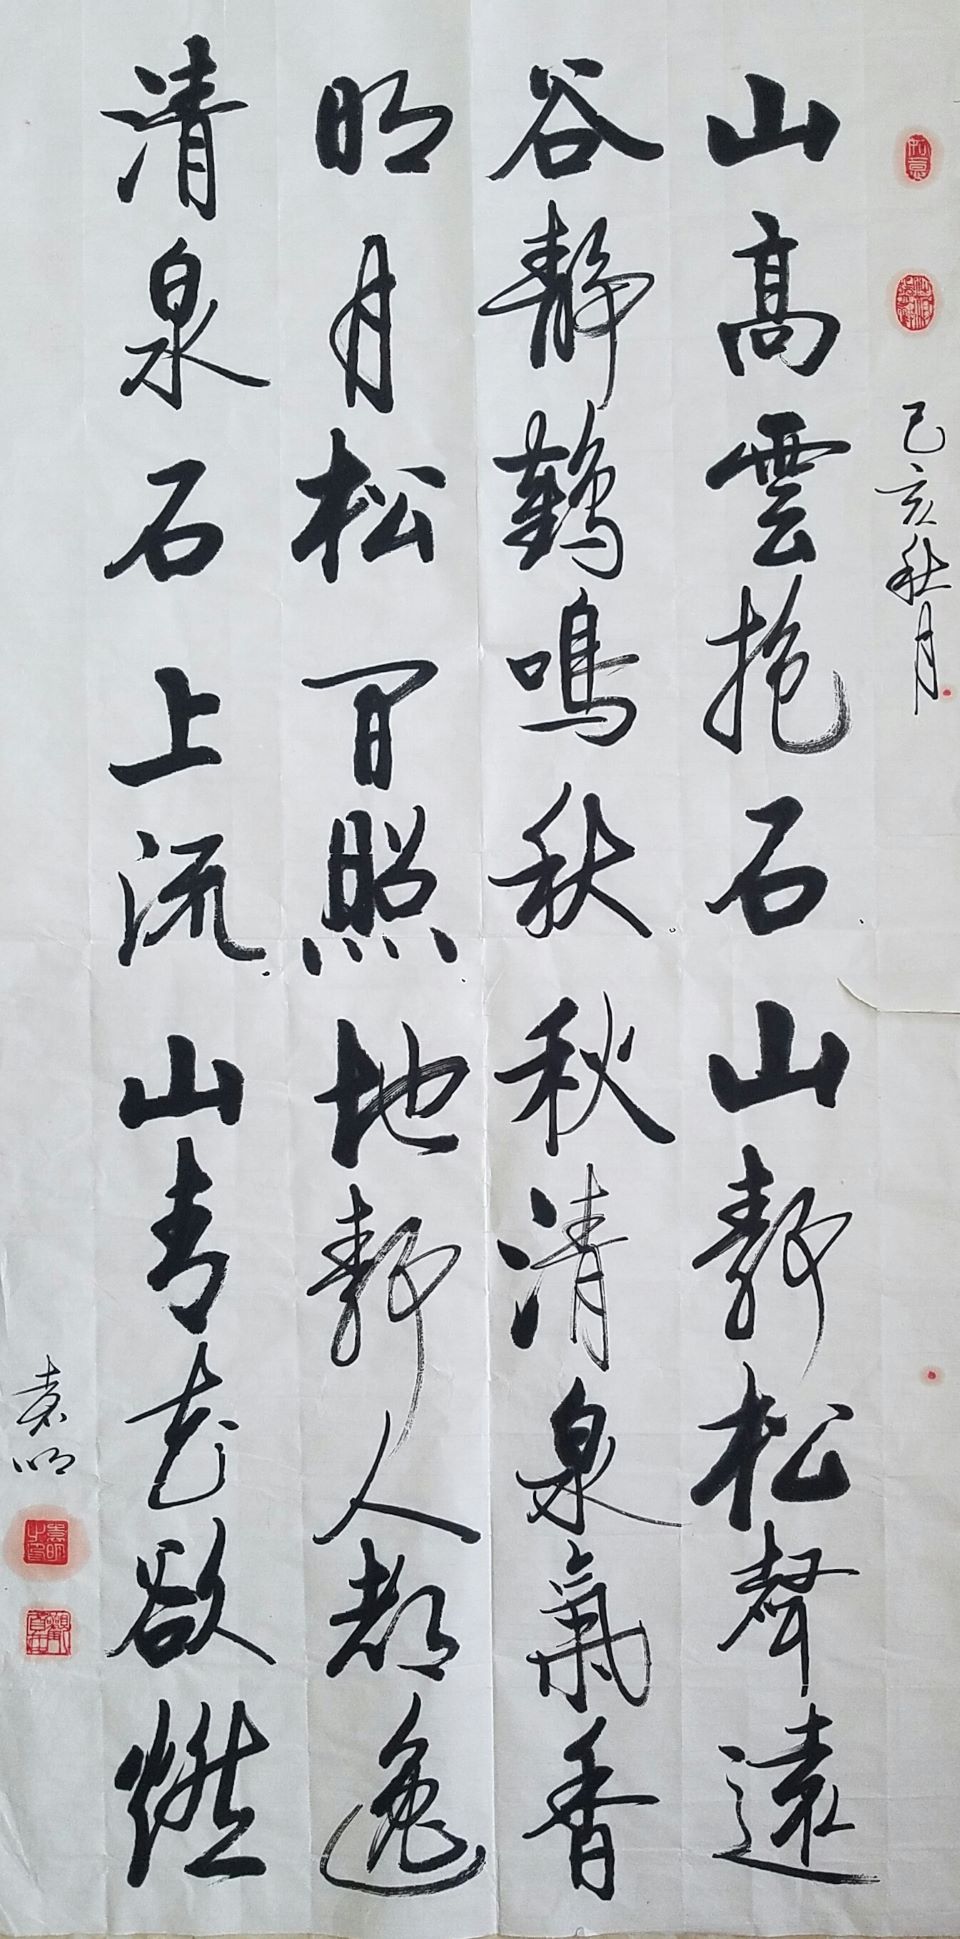 己亥秋月
山高雲抱石山靜松聲遠
谷靜鶴鳴秋秋清泉氣香
明月松间照地靜人都逸
清泉石上流山青花欲燃
袁明